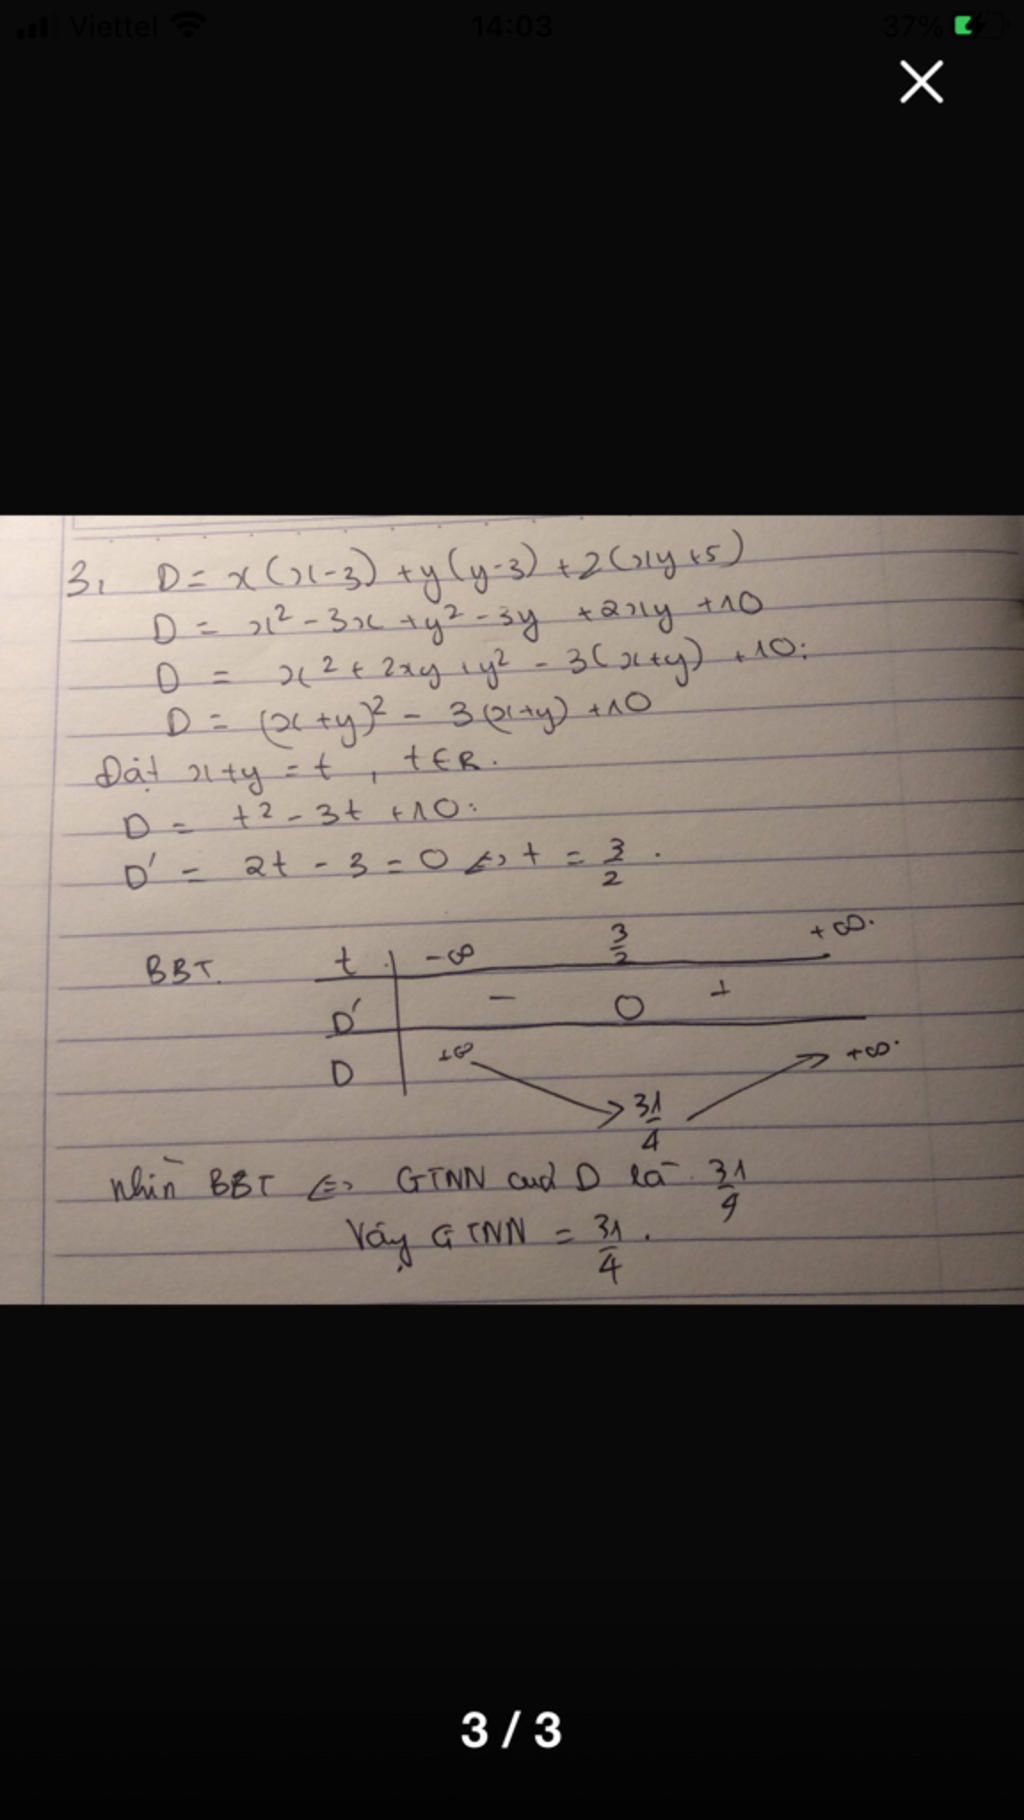 Viettel 14:03 37%
3, D = x(x-3) + y(y-3) + 2(xy+5)
D = x² - 3x + y² - 3y + 2xy + 10
D = x² + 2xy + y² - 3(x+y) + 10.
D = (x+y)² - 3(x+y) + 10
Đặt x+y = t , t ∈ R.
D = t² - 3t + 10.
D' = 2t - 3 = 0 <=> t = 3/2 .
BBT. t -∞ 3/2 +∞.
D' - 0 +
D +∞ 31/4 +∞.
Nhìn BBT <=> GTNN của D là 31/4
Vậy GTNN = 31/4 .
3 / 3